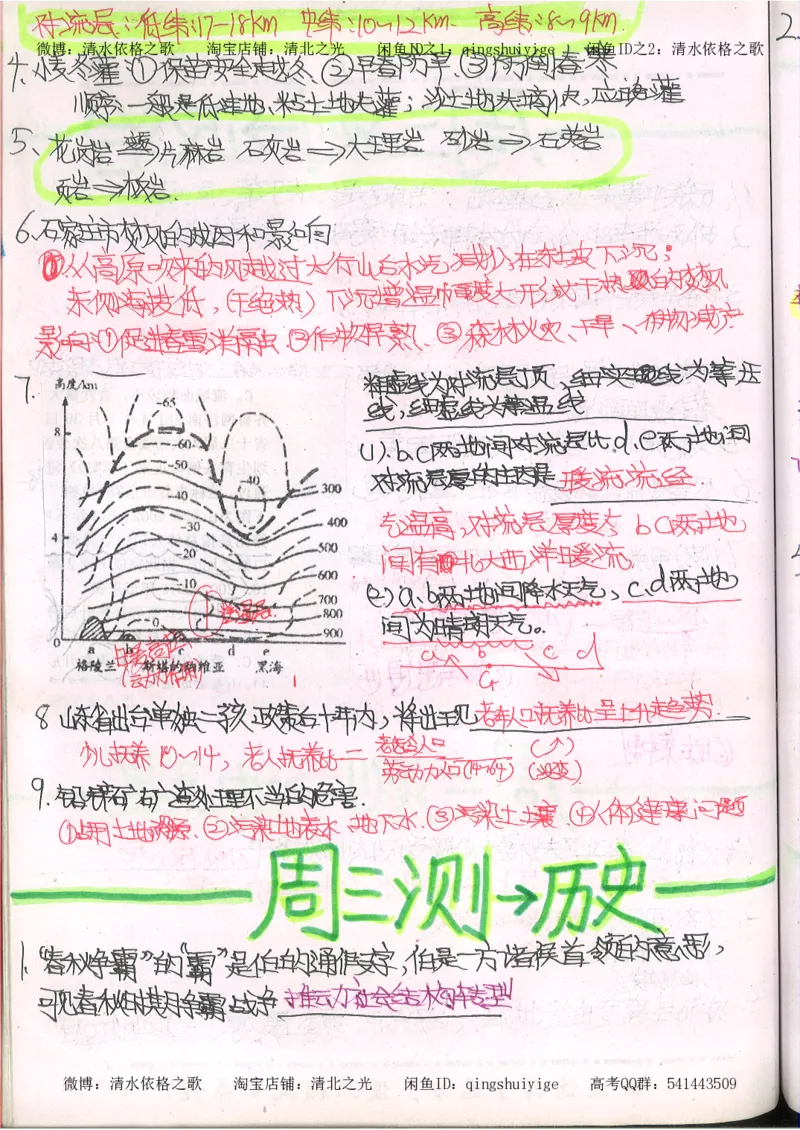 对流层：低纬：17-18km 中纬：10~12km. 高纬：8~9km
微博：清水依格之歌 淘宝店铺：清北之光 闲鱼ID之1：qingshuiyige 闲鱼ID之2：清水依格之歌
4、小麦冬灌：①保苗安全越冬、②早春防旱、③防倒春寒
顺序：一般是低洼地、粘土地先灌；沙土地失墒快，应晚灌
5、花岗岩⇒片麻岩 石灰岩⇒大理岩 砂岩⇒石英岩
页岩⇒板岩.
6.石家庄市焚风的成因和影响
①从高原吹来的风越过太行山后水汽减少，在东坡下沉；
东侧海拔低，（干绝热）下沉增温幅度大形成干热的焚风
影响：①促进春雪消融 ②作物早熟、③森林火灾、干旱、植物减产
7.
高度/km
8
4
0
-65
-60
-50
-40
-40
-30
-20
-10
0
300
400
500
600
700
800
900
a b c d e
格陵兰 斯堪的纳维亚 黑海
粗虚线为对流层顶，细实线为等压
线，细虚线为等温线
(1).b.c两地间对流层比.d.e两地间
对流层厚的主因是 暖流流经
气温高，对流层厚度大，bc两地
间有北大西洋暖流
(2)a.b两地间降水天气，c.d两地
间为晴朗天气。
a b c d
8 山东省出台单独二孩政策后十年内，将出现老年人口抚养比呈上升趋势.
少儿抚养 0~14，老人抚养比= 老龄人口 (↑)
劳动力人口(14-64) (不变)
9.铅锌矿矿渣处理不当的危害.
①占用土地资源.②污染地表水、地下水.③污染土壤 ④人体健康问题
周三测→历史
1."春秋争霸"的"霸"是伯的通假文字，伯是一方诸侯首领的意思，
可见春秋时期争霸战争推动社会结构转型
微博：清水依格之歌 淘宝店铺：清北之光 闲鱼ID：qingshuiyige 高考QQ群：541443509